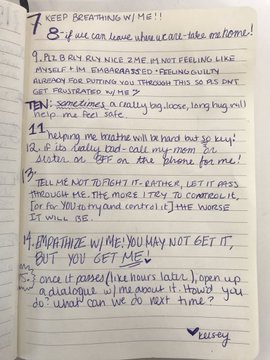 7 KEEP BREATHING W/ ME!!
8: if we can leave where we are - take me home!
9. PLZ B RLY RLY NICE 2 ME IM NOT FEELING LIKE
MYSELF + IM EMBARASSED + FEELING GUILTY
ALREADY FOR PUTTING YOU THROUGH THIS SO PLS DNT
GET FRUSTRATED W/ ME
TEN: sometimes a really big, loose, long hug will
help me feel safe.
11 helping me breathe will be hard but so key!
12. if its really bad - call my mom or
sister or BFF on the phone for me!
13. TELL ME NOT TO FIGHT IT - RATHER, LET IT PASS
THROUGH ME. THE MORE I TRY TO CONTROL IT,
[or for YOU to try and control it] THE WORSE
IT WILL BE.
14. EMPATHIZE W/ ME! YOU MAY NOT GET IT,
BUT YOU GET ME!
15. once it passes (like hours later), open up
a dialogue w/ me about it. How'd you
do? what can we do next time?
kelsey